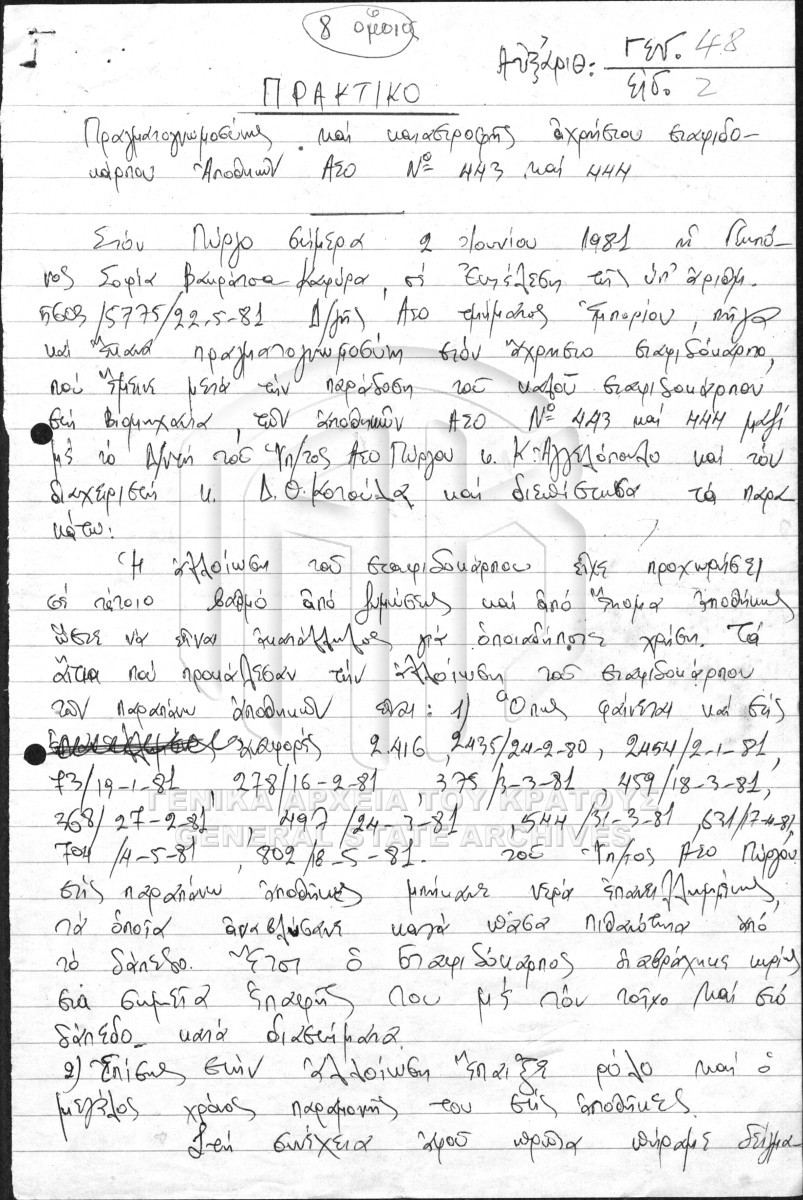 8 ὅμοια
Αὐξ. ἀριθ: Γεν. 48
Εἰδ. 2
ΠΡΑΚΤΙΚΟ
Πραγματογνωμοσύνης καί καταστροφῆς ἀχρήστου σταφιδο-
κάρπου Ἀποθηκῶν ΑΣΟ Νο 443 καί 444
Στόν Πύργο σήμερα 2 Ἰουνίου 1981 ἡ Γεωπό-
νος Σοφία Καφύρα, σέ ἐκτέλεση τῆς ὑπ' ἀριθμ.
/5775/22-5-81 Δ/γῆς ΑΣΟ τμήματος Ἐμπορίου, πῆγα
καί ἔκανα πραγματογνωμοσύνη στόν ἄχρηστο σταφιδόκαρπο,
πού ἔμεινε μετά τήν παράδοση τοῦ καλοῦ σταφιδοκάρπου
στή βιομηχανία, τῶν ἀποθηκῶν ΑΣΟ Νο 443 καί 444 μαζί
μέ το Δ/ντή τοῦ Ὑπ/τος ΑΣΟ Πύργου κ. Κ. Ἀγγελόπουλο καί τόν
διαχειριστή κ. Δ. Θ. Κοτούλα καί διεπίστωσα τά παρα
κάτω:
Ἡ ἀλλοίωση τοῦ σταφιδοκάρπου εἶχε προχωρήσει
σέ τέτοιο βαθμό ἀπό ζυμώσεις καί ἀπό ἀποθήκης
ὥστε νά εἶναι ἀκατάλληλος γιά ὁποιαδήποτε χρήση. Τά
αἴτια πού προκάλεσαν τήν ἀλλοίωση τοῦ σταφιδοκάρπου
τῶν παραπάνω ἀποθηκῶν εἶναι: 1) Ὅπως φαίνεται καί στίς
ἀναφορές 2.416, 2435/24-2-80, 2454/2-1-81,
73/19-1-81, 278/16-2-81, 375/3-3-81, 459/18-3-81,
368/27-2-81, 497/24-3-81, 544/31-3-81, 631/17-4-81,
704/4-5-81, 802/18-5-81. τοῦ Ὑπ/τος ΑΣΟ Πύργου
στίς παραπάνω ἀποθῆκες μπήκανε νερά ἐπανειλλημμένως,
τά ὁποῖα ἀναβλύσανε κατά πᾶσα πιθανότητα ἀπό
τό δάπεδο. Ἔτσι ὁ σταφιδόκαρπος διαβράχηκε κυρίως
στά σημεῖα ἐπαφῆς του μέ τόν τοῖχο καί στό
δάπεδο κατά διαστήματα.
2) Ἐπίσης στήν ἀλλοίωση ἔπαιξε ρόλο καί ὁ
μεγάλος χρόνος παραμονῆς του στίς ἀποθῆκες.
Στή συνέχεια ἀφοῦ πρῶτα πήραμε δείγμα-
ΓΕΝΙΚΑ ΑΡΧΕΙΑ ΤΟΥ ΚΡΑΤΟΥΣ
GENERAL STATE ARCHIVES